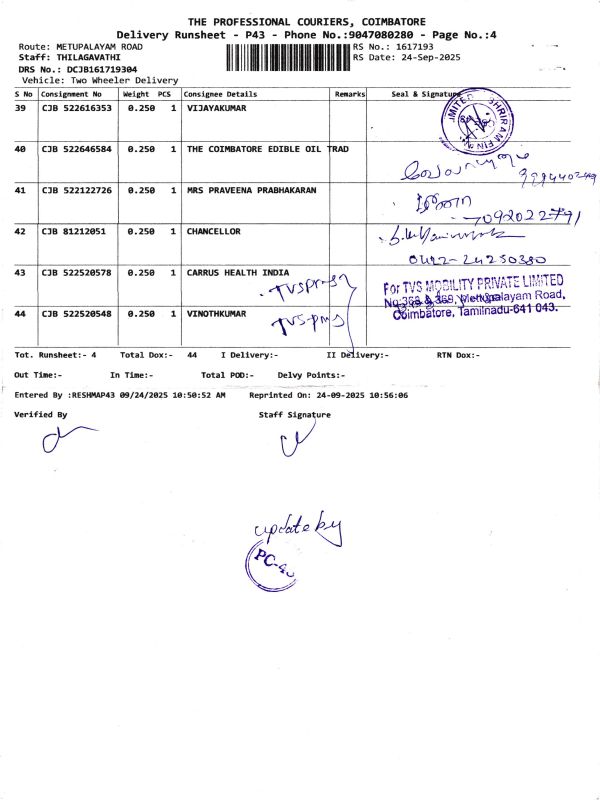 THE PROFESSIONAL COURIERS, COIMBATORE
Delivery Runsheet - P43 - Phone No.:9047080280 - Page No.:4
Route: METUPALAYAM ROAD RS No.: 1617193
Staff: THILAGAVATHI RS Date: 24-Sep-2025
DRS No.: DCJB161719304
Vehicle: Two Wheeler Delivery
S No Consignment No Weight PCS Consignee Details Remarks Seal & Signature
39 CJB 522616353 0.250 1 VIJAYAKUMAR
40 CJB 522646584 0.250 1 THE COIMBATORE EDIBLE OIL TRAD
41 CJB 522122726 0.250 1 MRS PRAVEENA PRABHAKARAN
7092022791
42 CJB 81212051 0.250 1 CHANCELLOR
0422-24250380
43 CJB 522520578 0.250 1 CARRUS HEALTH INDIA
For TVS MOBILITY PRIVATE LIMITED
Mettupalayam Road,
Coimbatore, Tamilnadu-641 043.
44 CJB 522520548 0.250 1 VINOTHKUMAR
Tot. Runsheet:- 4 Total Dox:- 44 I Delivery:- II Delivery:- RTN Dox:-
Out Time:- In Time:- Total POD:- Delvy Points:-
Entered By :RESHMAP43 09/24/2025 10:50:52 AM Reprinted On: 24-09-2025 10:56:06
Verified By Staff Signature
update by